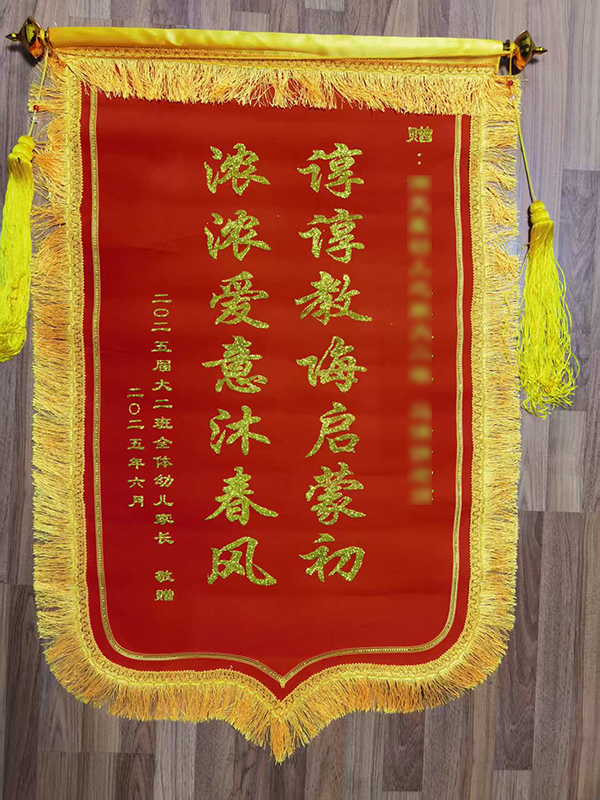 赠：
谆谆教诲启蒙初
浓浓爱意沐春风
二〇二五届大二班全体幼儿家长 敬赠
二〇二五年六月